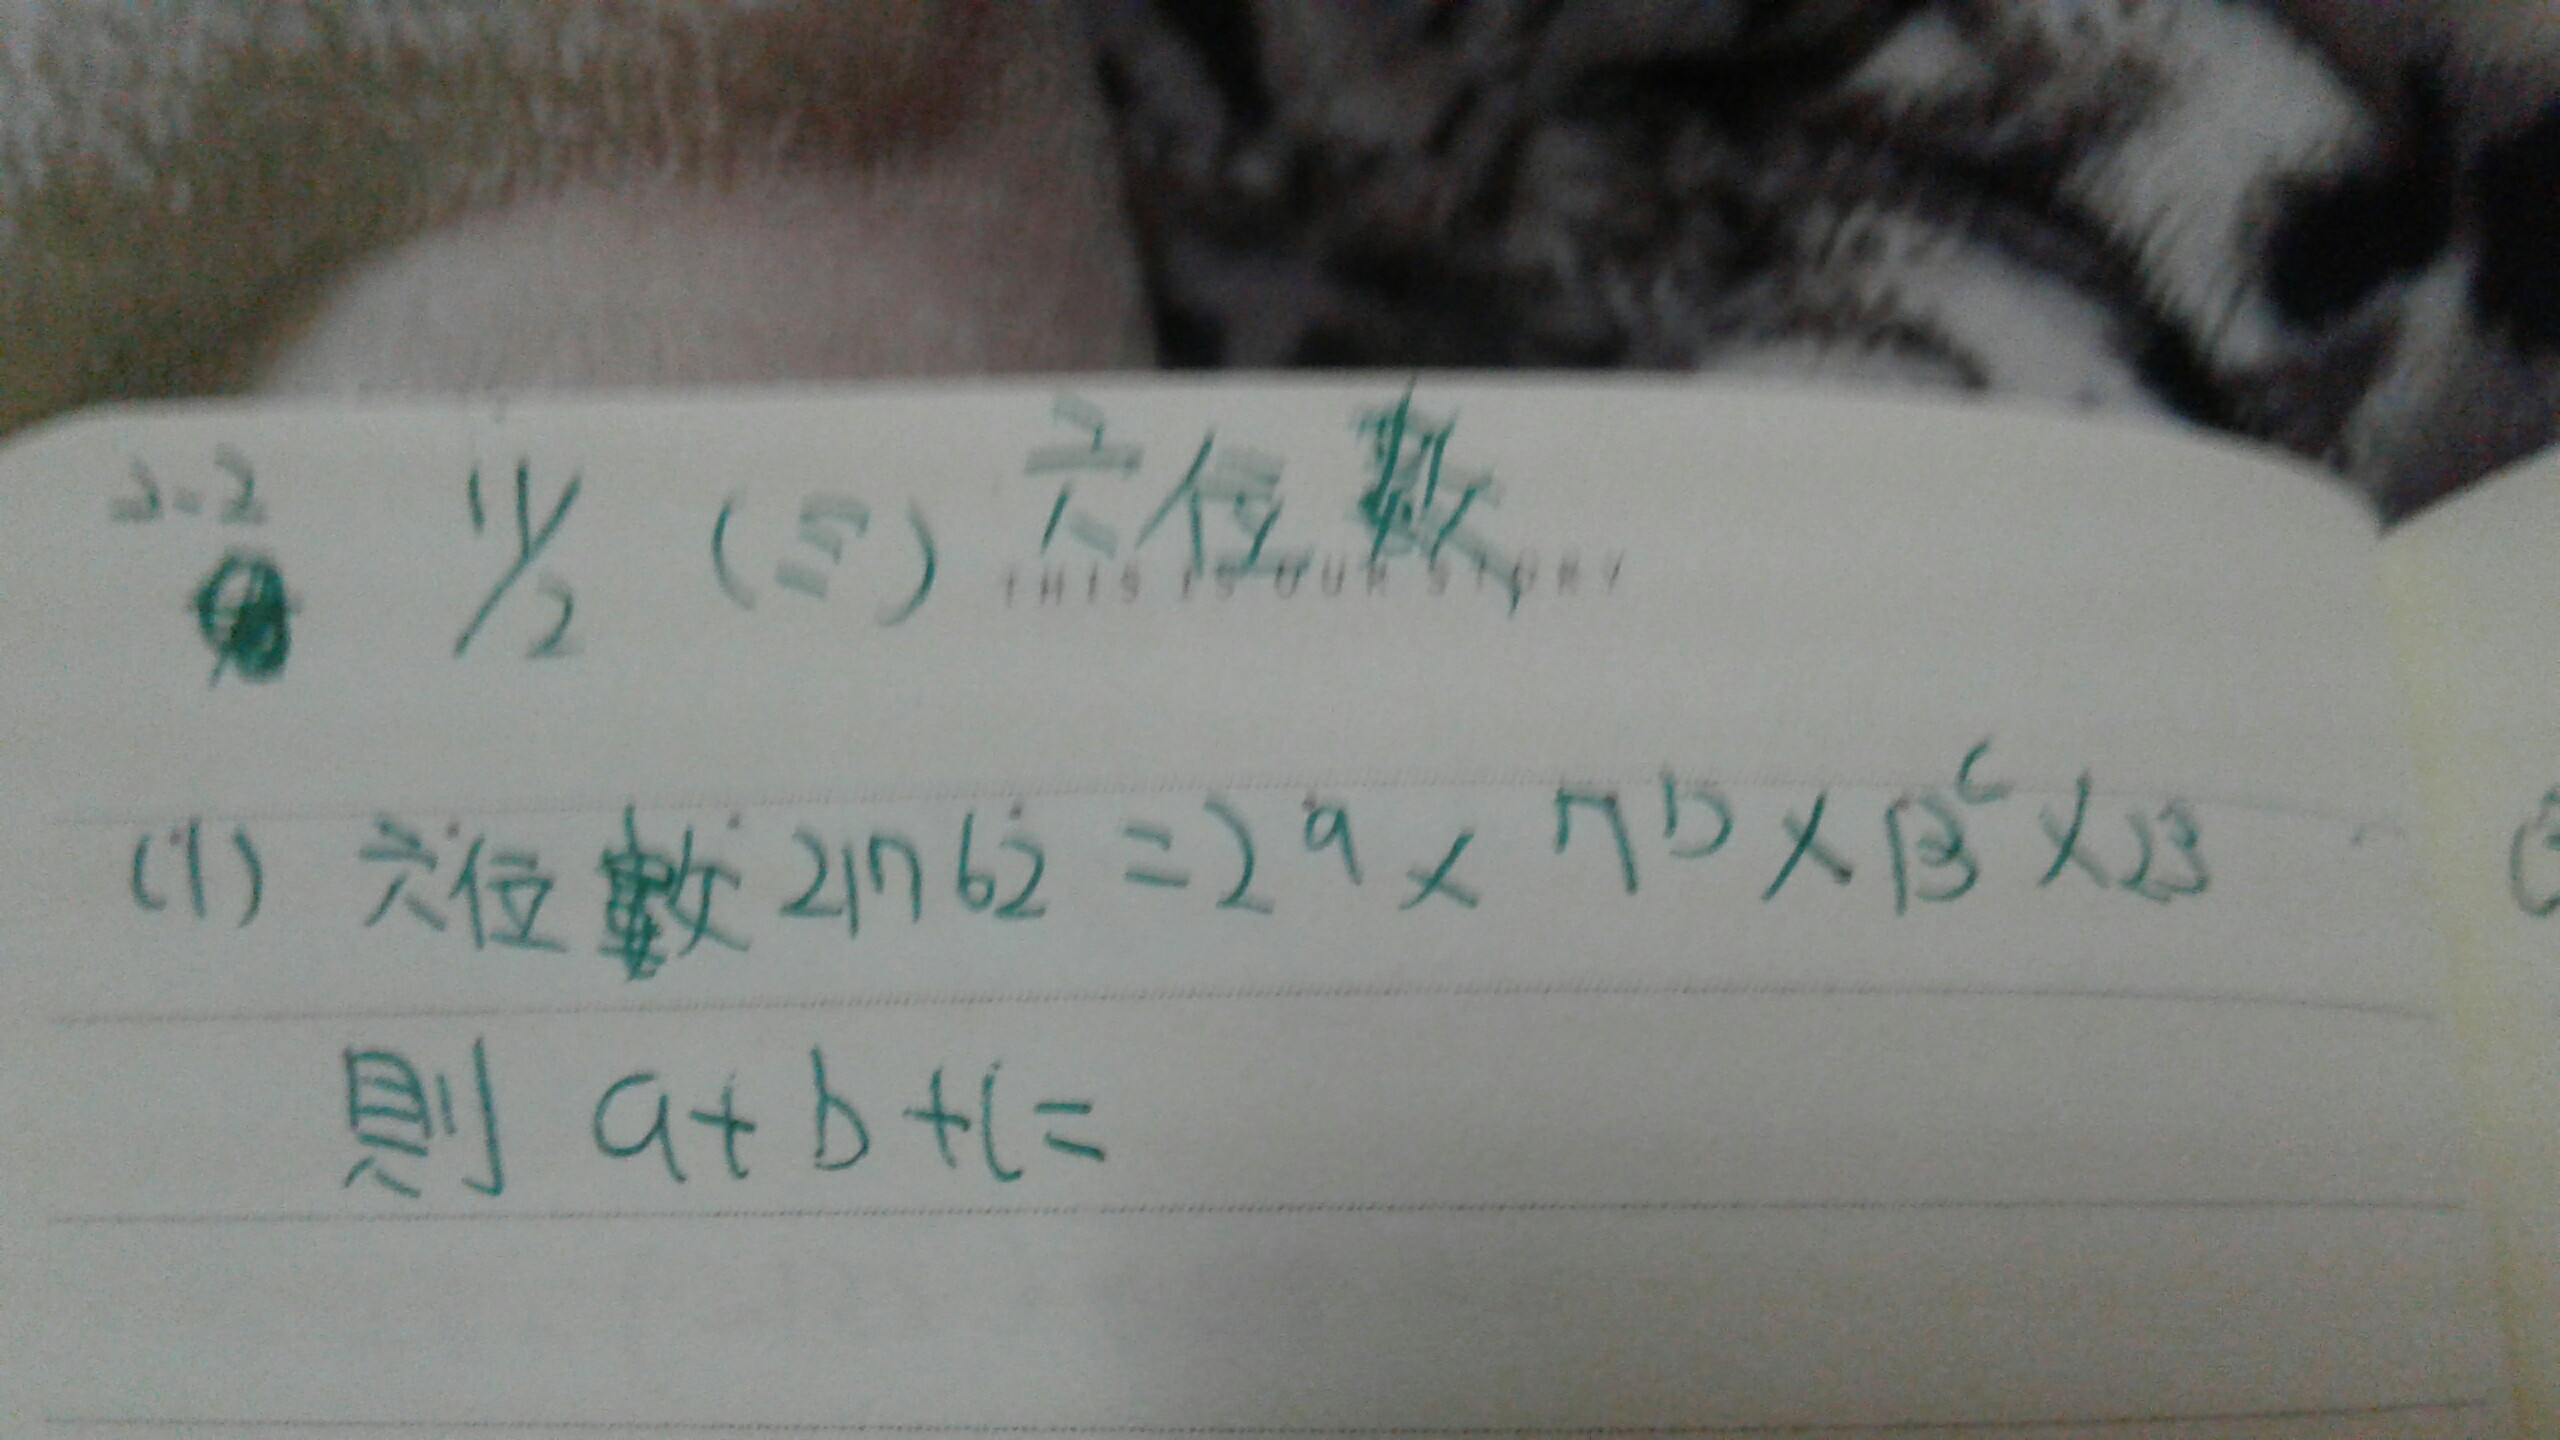 2-2 11/2 (三) 六位數
THIS IS OUR STORY
(1) 六位數 21762 = 2ᵃ × 7ᵇ × 13ᶜ × 23
則 a + b + c =